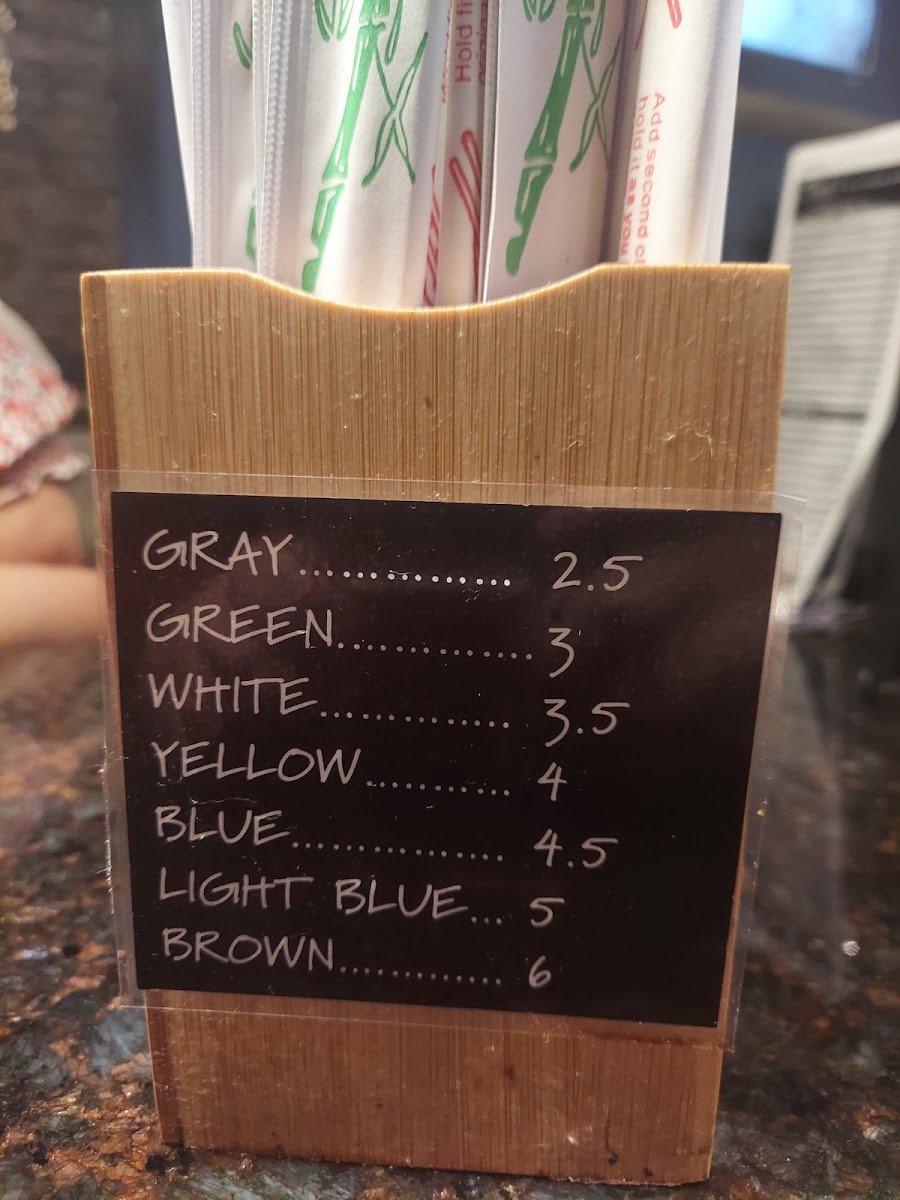 Hold fi
Add second ch
hold it as you
GRAY............... 2.5
GREEN.............. 3
WHITE.............. 3.5
YELLOW........... 4
BLUE................ 4.5
LIGHT BLUE... 5
BROWN............. 6